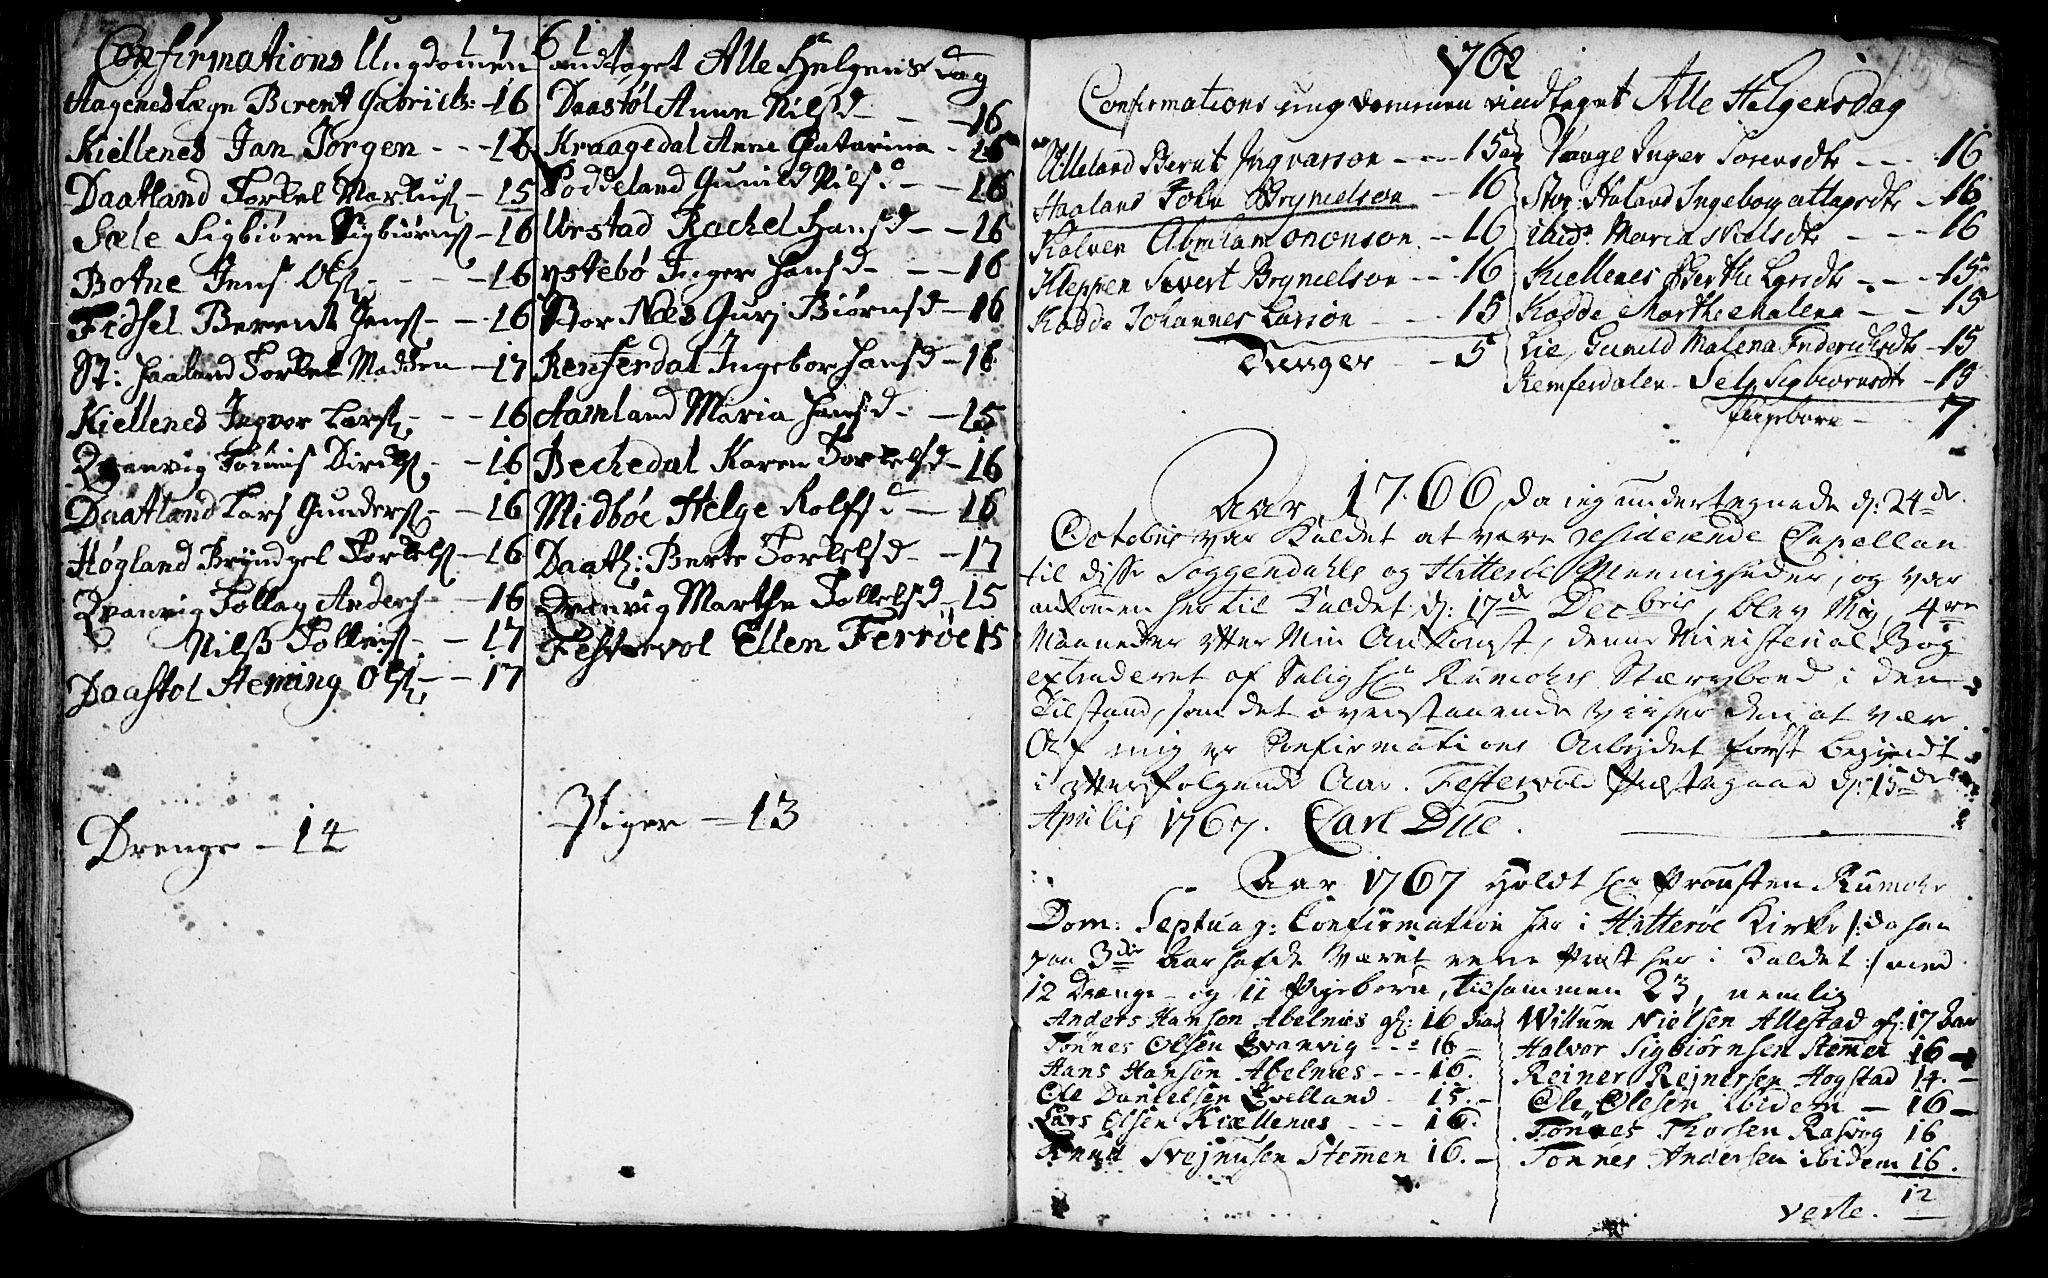 1761
Confirmations Ungdommen andtaget Alle Helgens Dag
Aagenes Lægn Berent Gabriels: - 16
Kiellenes Jan Jørgen - - - 16
Daatland Torkel Markus - 15
Sæle Sigbiørn Sigbiørns - 16
Botne Jens Ols - - - 16
Fidsel Berent Jens - - 16
St: Haaland Torkel Madsen - 17
Kiellenes Ingvor Lars - - - 16
Qvanvig Tønnis Dirks - - 16
Daatland Lars Gunders - - 16
Høgland Bryndgel Torkels - 16
Qvanvig Tollag Anders - - 16
Nilss Tollags - - 17
Daastøl Heming Ols - - 17
Drenge - 14
Daastøl Anne Nilsd - - - 16
Kraagedal Anne Catarina - 15
Toddeland Gunild Nilsd - - 16
Urstad Rachel Hansd - - 16
Ystebø Inger Hansd - - - 16
Bor Næs Guri Biørnsd - 16
Renferdal Ingebor Hansd - 16
Aamland Maria Hansd - - 15
Bechedal Karen Torkelsd - 16
Midbøe Helge Rolfsd - 16
Daatl: Berte Torkelsd - - 17
Qvanvig Marthe Tollelsd - 15
Festervol Ellen Ferrøe 15
Piger - 13
1762
Confirmations ungdommen andtaget Alle Helgensdag
Ulleland Bernt Ingvarson - - - 15 aar
Haaland John Brynielson - 16
Kalven Abraham Ononson - - 16
Kleppen Sivert Brynielson - - 16
Kodde Johannes Larson - - - 15
Drenger - - 5
Vange Inger Torensdtr - - - 16
Stor: Haland Ingeborg Attlagsdtr - 16
ibid: Maria Nielsdtr - - - 16
Kiellenes Berthe Larsdtr - - - 15
Kodde Marthe Malena - - 15
Lie, Gunild Malena Friderichsdtr - 15
Remferdalen - Sely Sigbiørnsdtr - 15
Pigebørn - 7
Aar 1766, da ieg undertegnede d: 24de
Octobris var Kaldet at være residerende Capellan
til disse Soggendahls og Hitterøe Menigheder, og var
ankommen her til Kaldet d: 17de Decbris, blev Mig, 4re
Maaneder etter Min Ankomst, denne Ministerial Bog
extraderet af Salig Hr Rumohrs Stærvboed, i den
Tilstand, som det ovenstaaende viiser den at vær
Af mig er Confirmations Arbeydet først begyndt
i etterfølgende Aar. Festervold Præstegaard d: 15de
Aprilis 1767. Carl Due.
Aar 1767 Holdt Hr Prousten Rumohr
Dom: Septuag: Confirmation her i Hitterøe Kirke /: da han
paa 3de Aar hafde Været eene Præst her i Kaldet :/ med
12 Drænge - og 11 Pigebørn, tilsammen 23, nemlig
Anders Hanson Abelnæs gl: 16 Aar
Tønnes Olsen Qvanvig - - - 16 -
Hans Hansøn Abelnæs - - - 16.
Ole Danielsen Qvelland - 15. -
Lars Olsen Kiællenæs - - - 16.
Knud Svejnusen Stemen 16. -
Willum Nielsen Allestad gl: 17 Aar
Halvor Sigbiørnsen Stemen 16 -
Reiner Rejnersen Hogstad 14. -
Ole Olesen ibidem - 16 -
Tønnes Thorsen Rasvog 16
Tønnes Andersen ibidem 16.
12
verte.